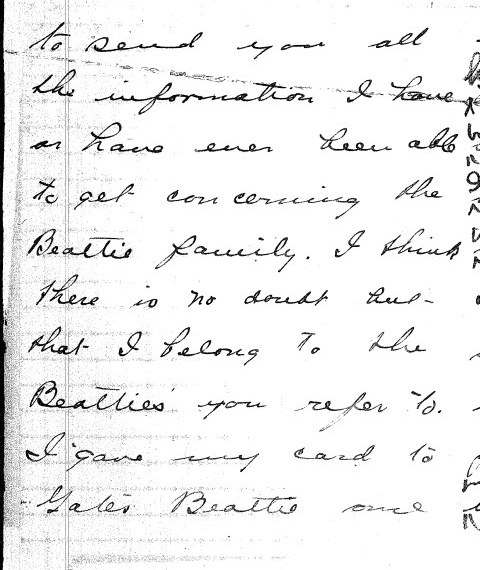 to send you all
the information I have
or have ever been able
to get concerning the
Beattie family. I think
there is no doubt but
that I belong to the
Beatties you refer to.
I gave my card to
Beattie once